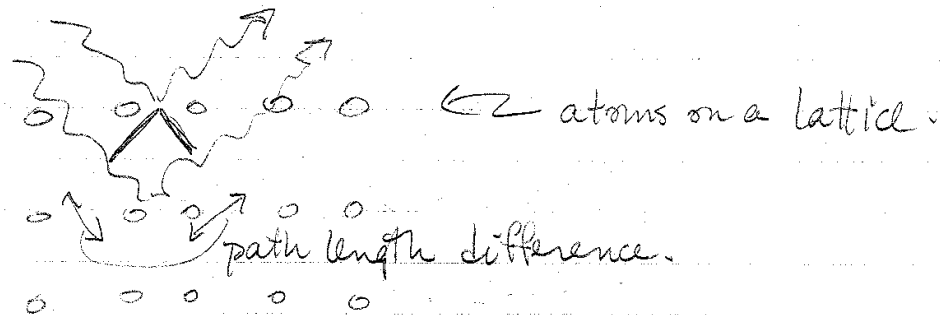 atoms on a lattice.
path length difference.